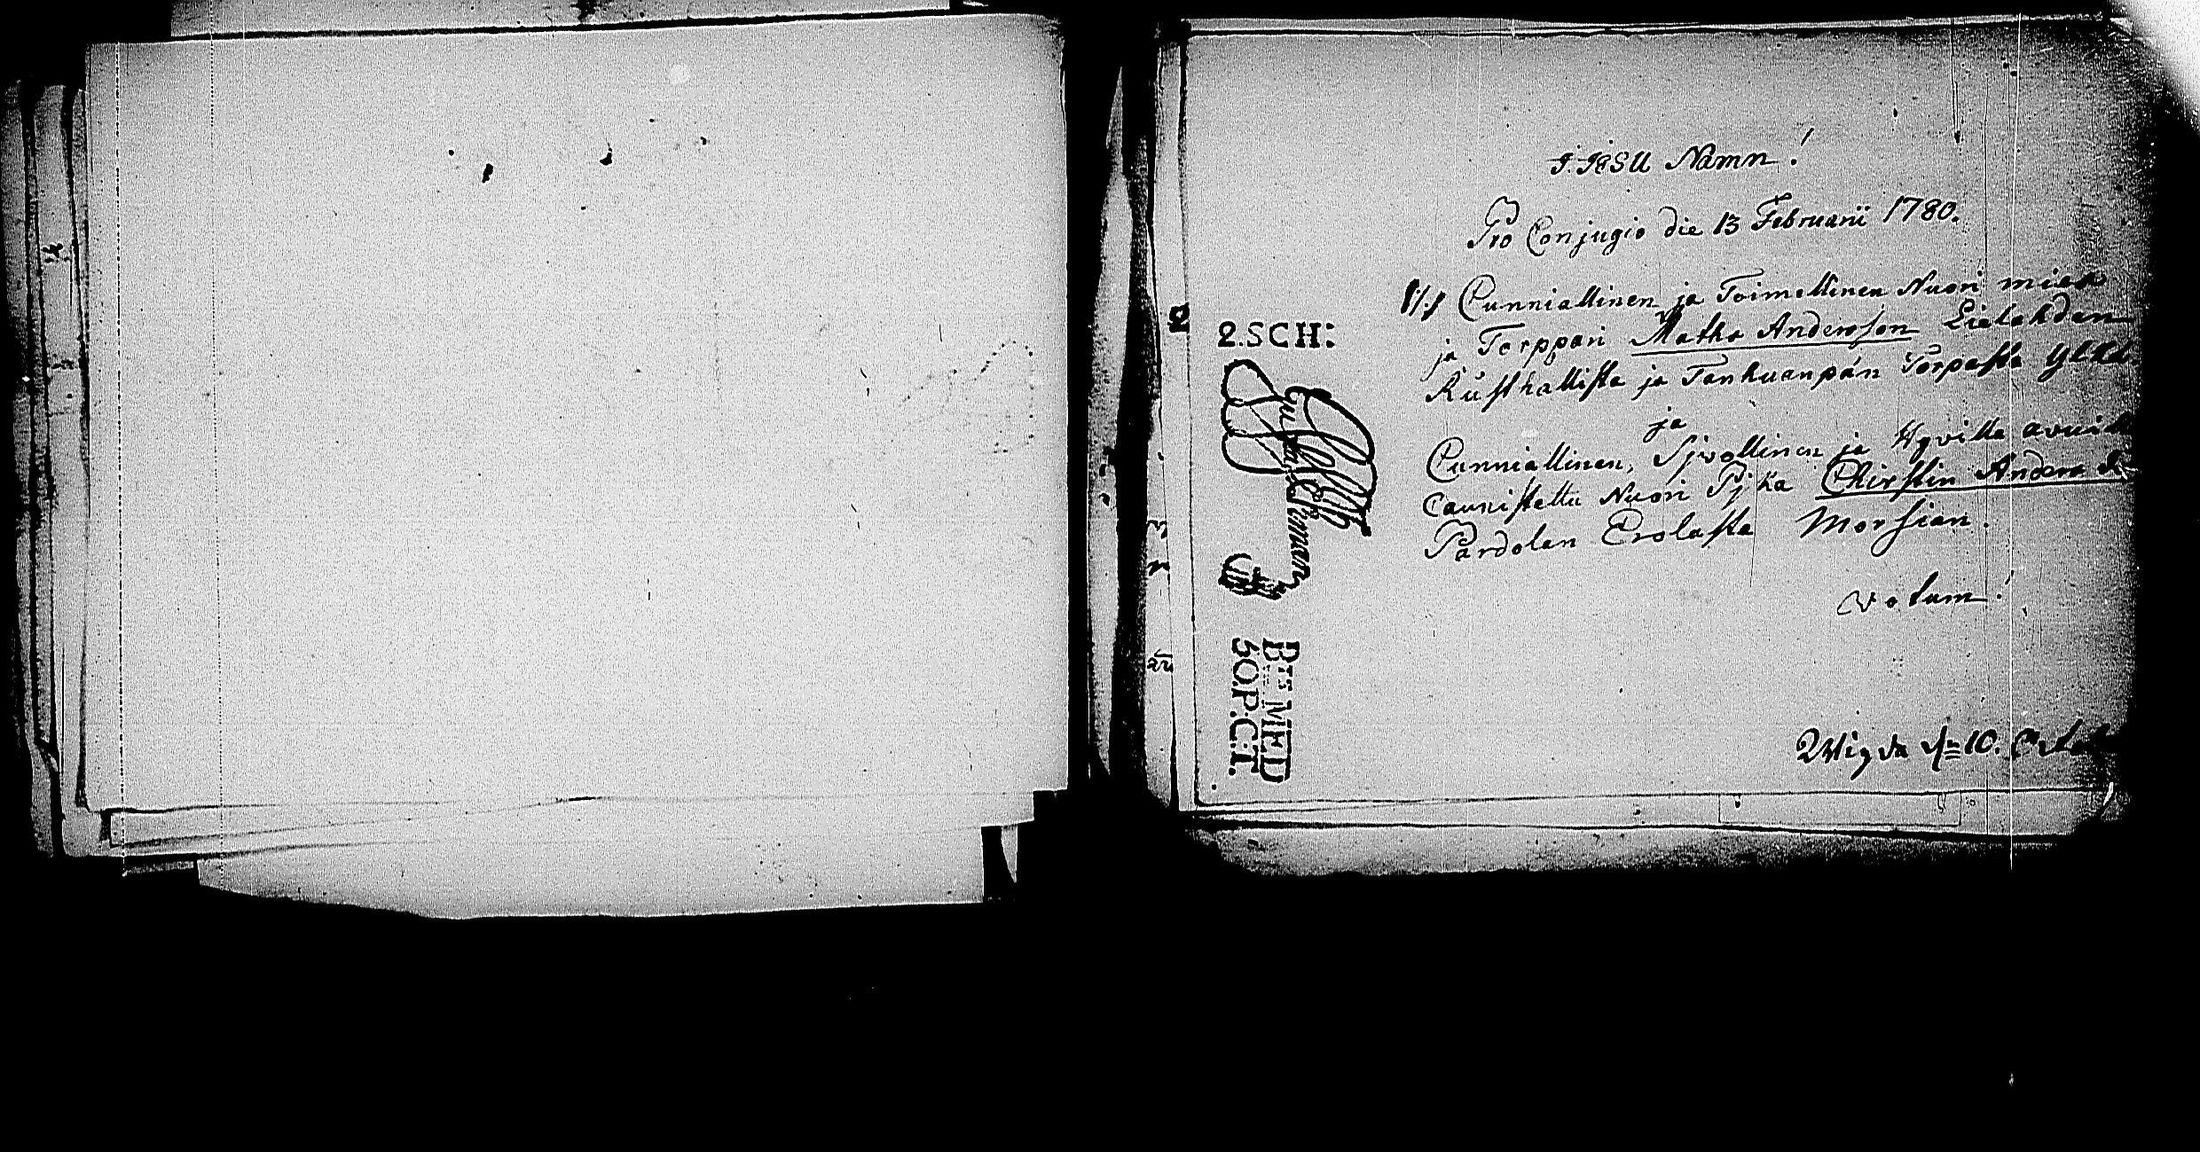 I. JESU Namn!
Pro Conjugio die 13 Februarii 1780.
Cunniallinen ja Toimellinen Nuori mies
ja Torppari Matho Andersson Lielahden
Rusthallista ja Tankuanpän Torpasta Ylkä
ja
Cunniallinen, Sjvollinen ja Hyvillä avuilla
Caunistettu Nuori Pjka Chirstin Anders
Pardolan Erolasta Morsian.
votum!
Wigda d. 10. Octob
2.SCH:
Bts MED
50.P.C.T.